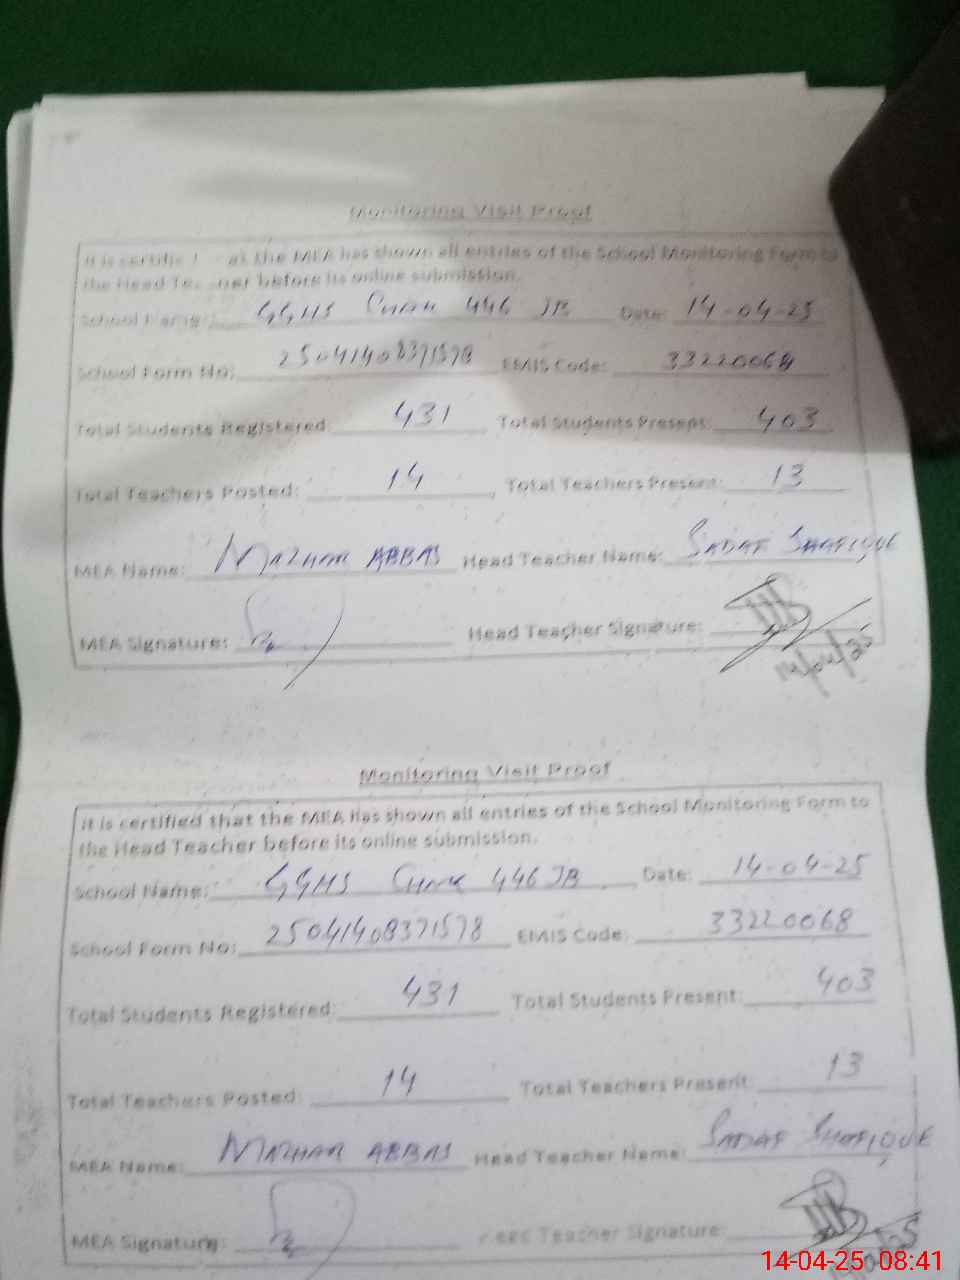 Monitoring Visit Proof
It is certifie at the MEA has shown all entries of the School Monitoring Form to
the Head Te ner before its online submission.
School Name: GGHS CHAK 446 JB Date: 14-04-25
School Form No: 25041408371578 EMIS Code: 33220068
Total Students Registered: 431 Total Students Present: 403
Total Teachers Posted: 14, Total Teachers Present: 13
MEA Name: MAZHAR ABBAS Head Teacher Name: SADAF SHAFIQUE
MEA Signature: Head Teacher Signature:
14/04/25
Monitoring Visit Proof
It is certified that the MEA has shown all entries of the School Monitoring Form to
the Head Teacher before its online submission.
School Name: GGHS CHAK 446 JB Date: 14-04-25
School Form No: 25041408371578 EMIS Code: 33220068
Total Students Registered: 431 Total Students Present: 403
Total Teachers Posted: 14 Total Teachers Present: 13
MEA Name: MAZHAR ABBAS Head Teacher Name: SADAF SHAFIQUE
MEA Signature: Teacher Signature:
14-04-25 08:41